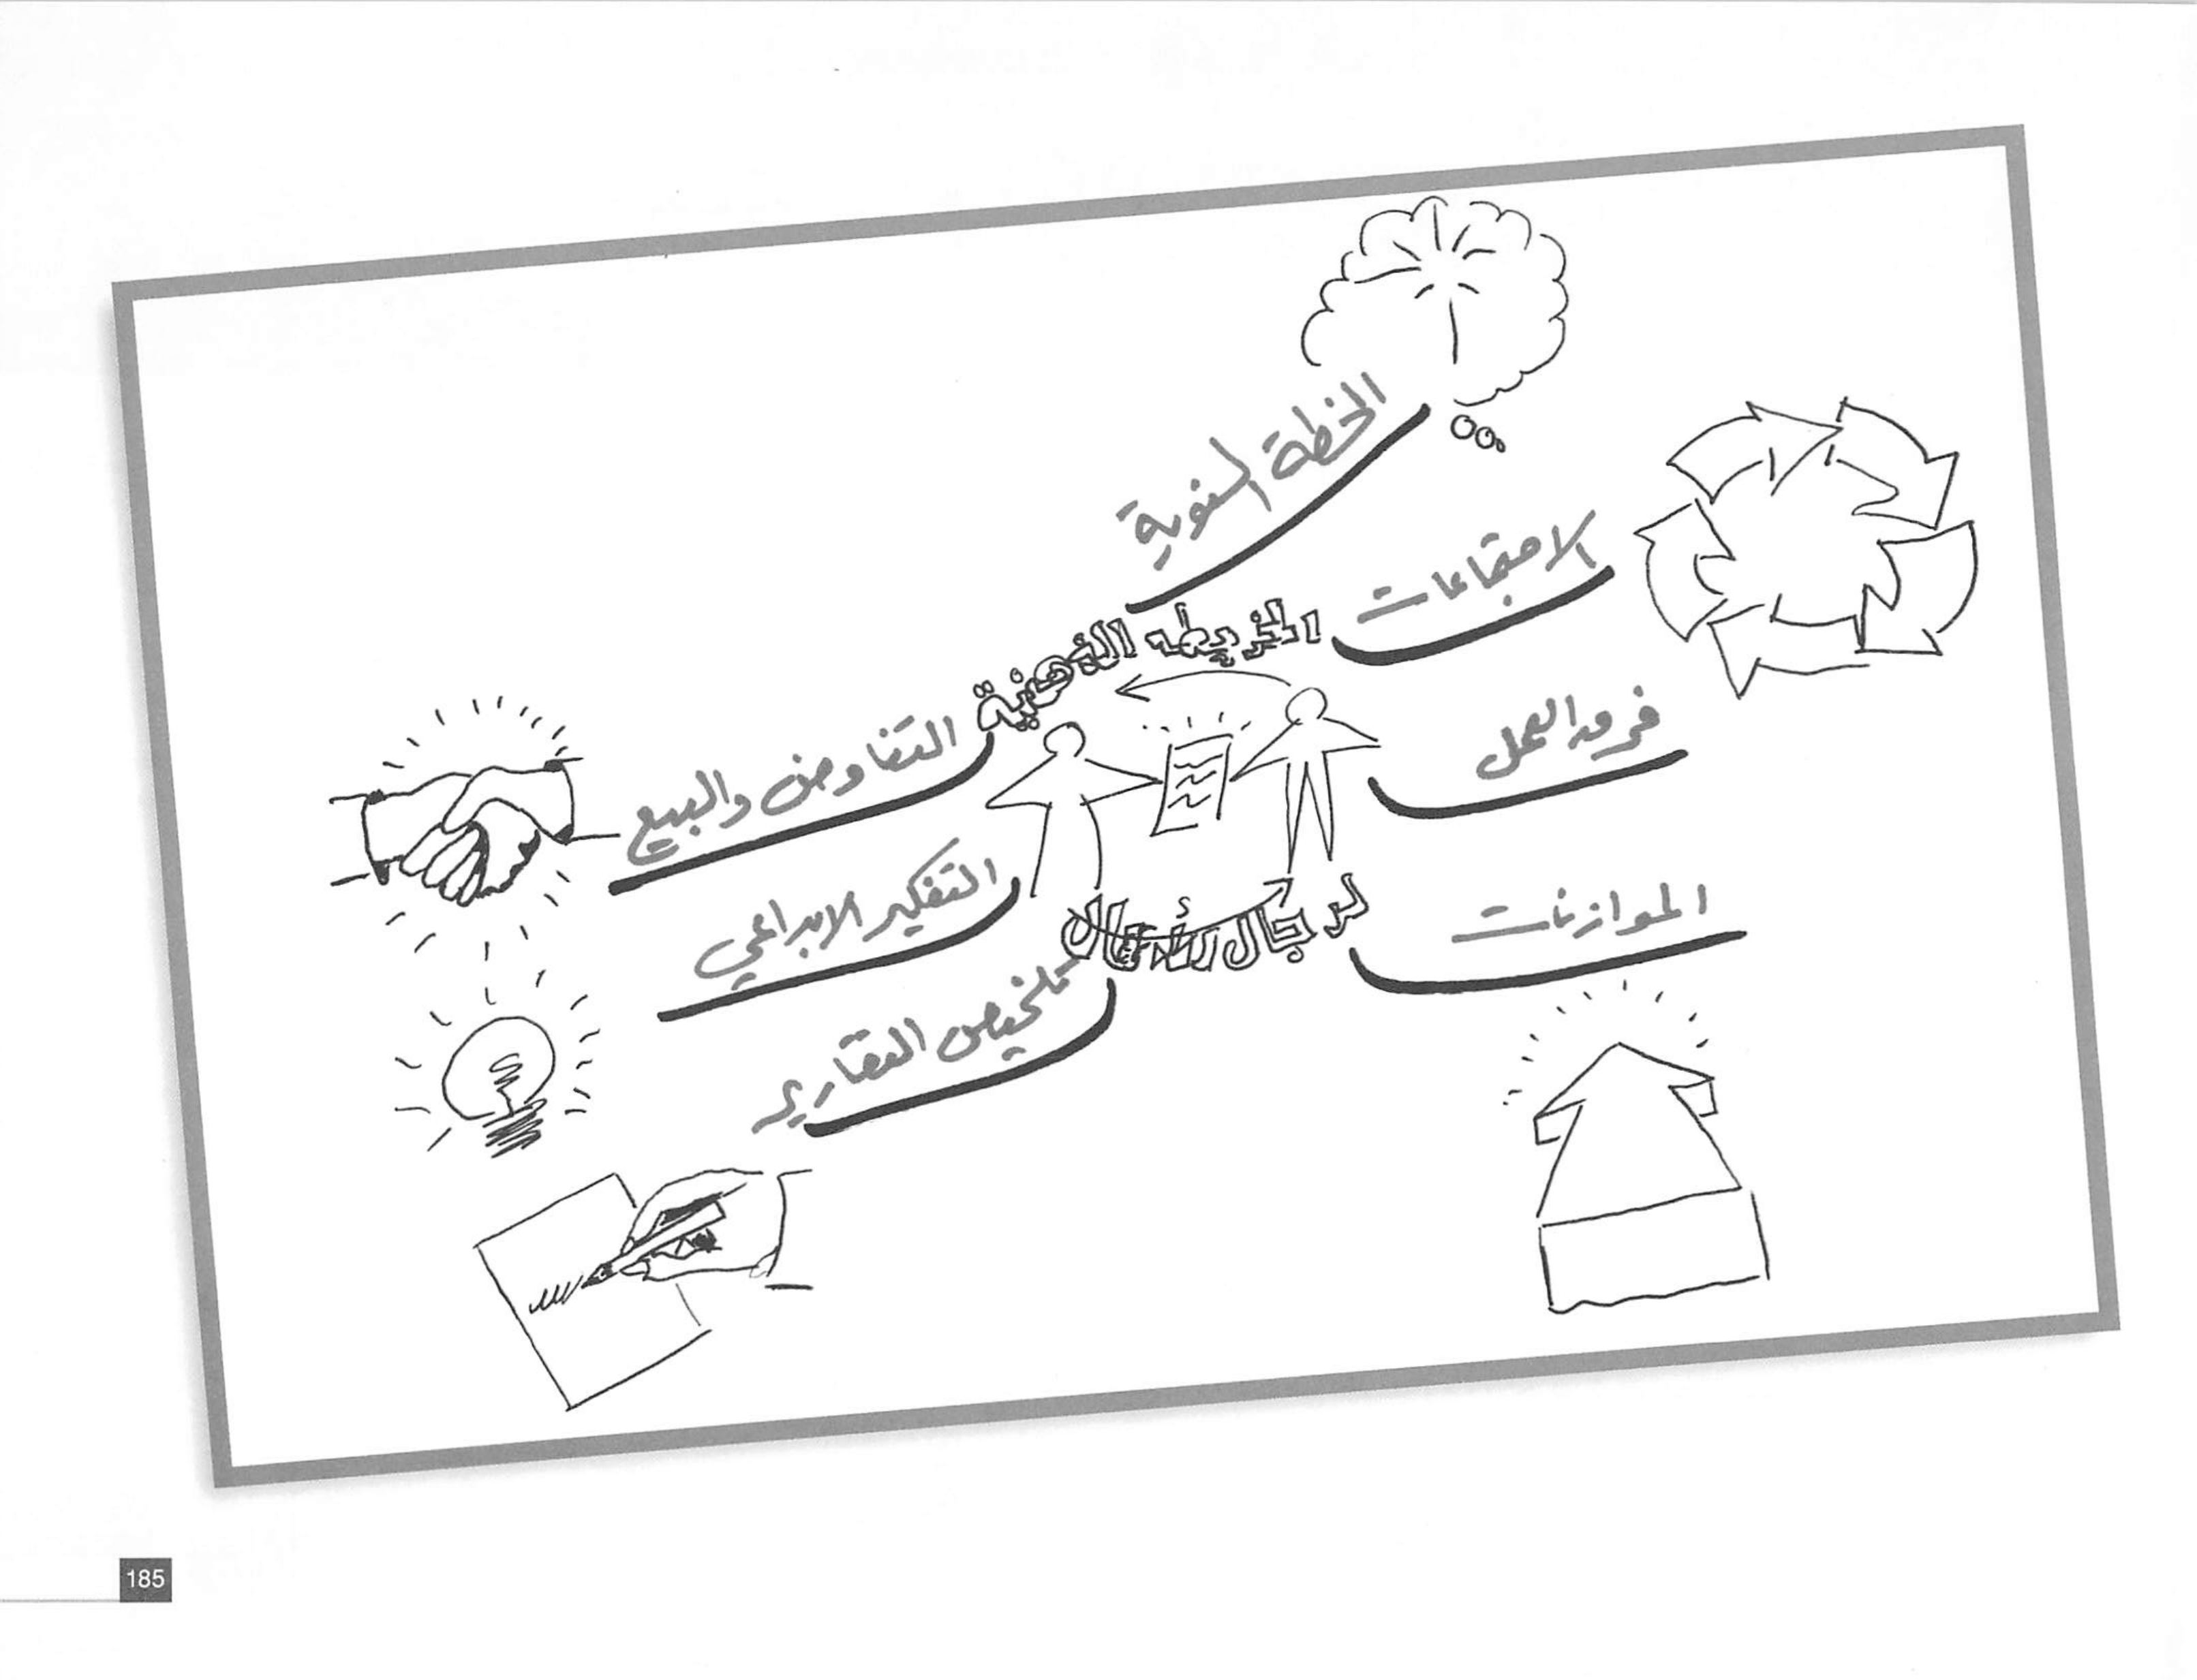 الخطة السنوية
الاجتماعات
الخريطه الذهنية
فرق العمل
التفاوض والبيع
التفكير الابداعي
الموازنات
لرجال الأعمال
تلخيص التقارير
185